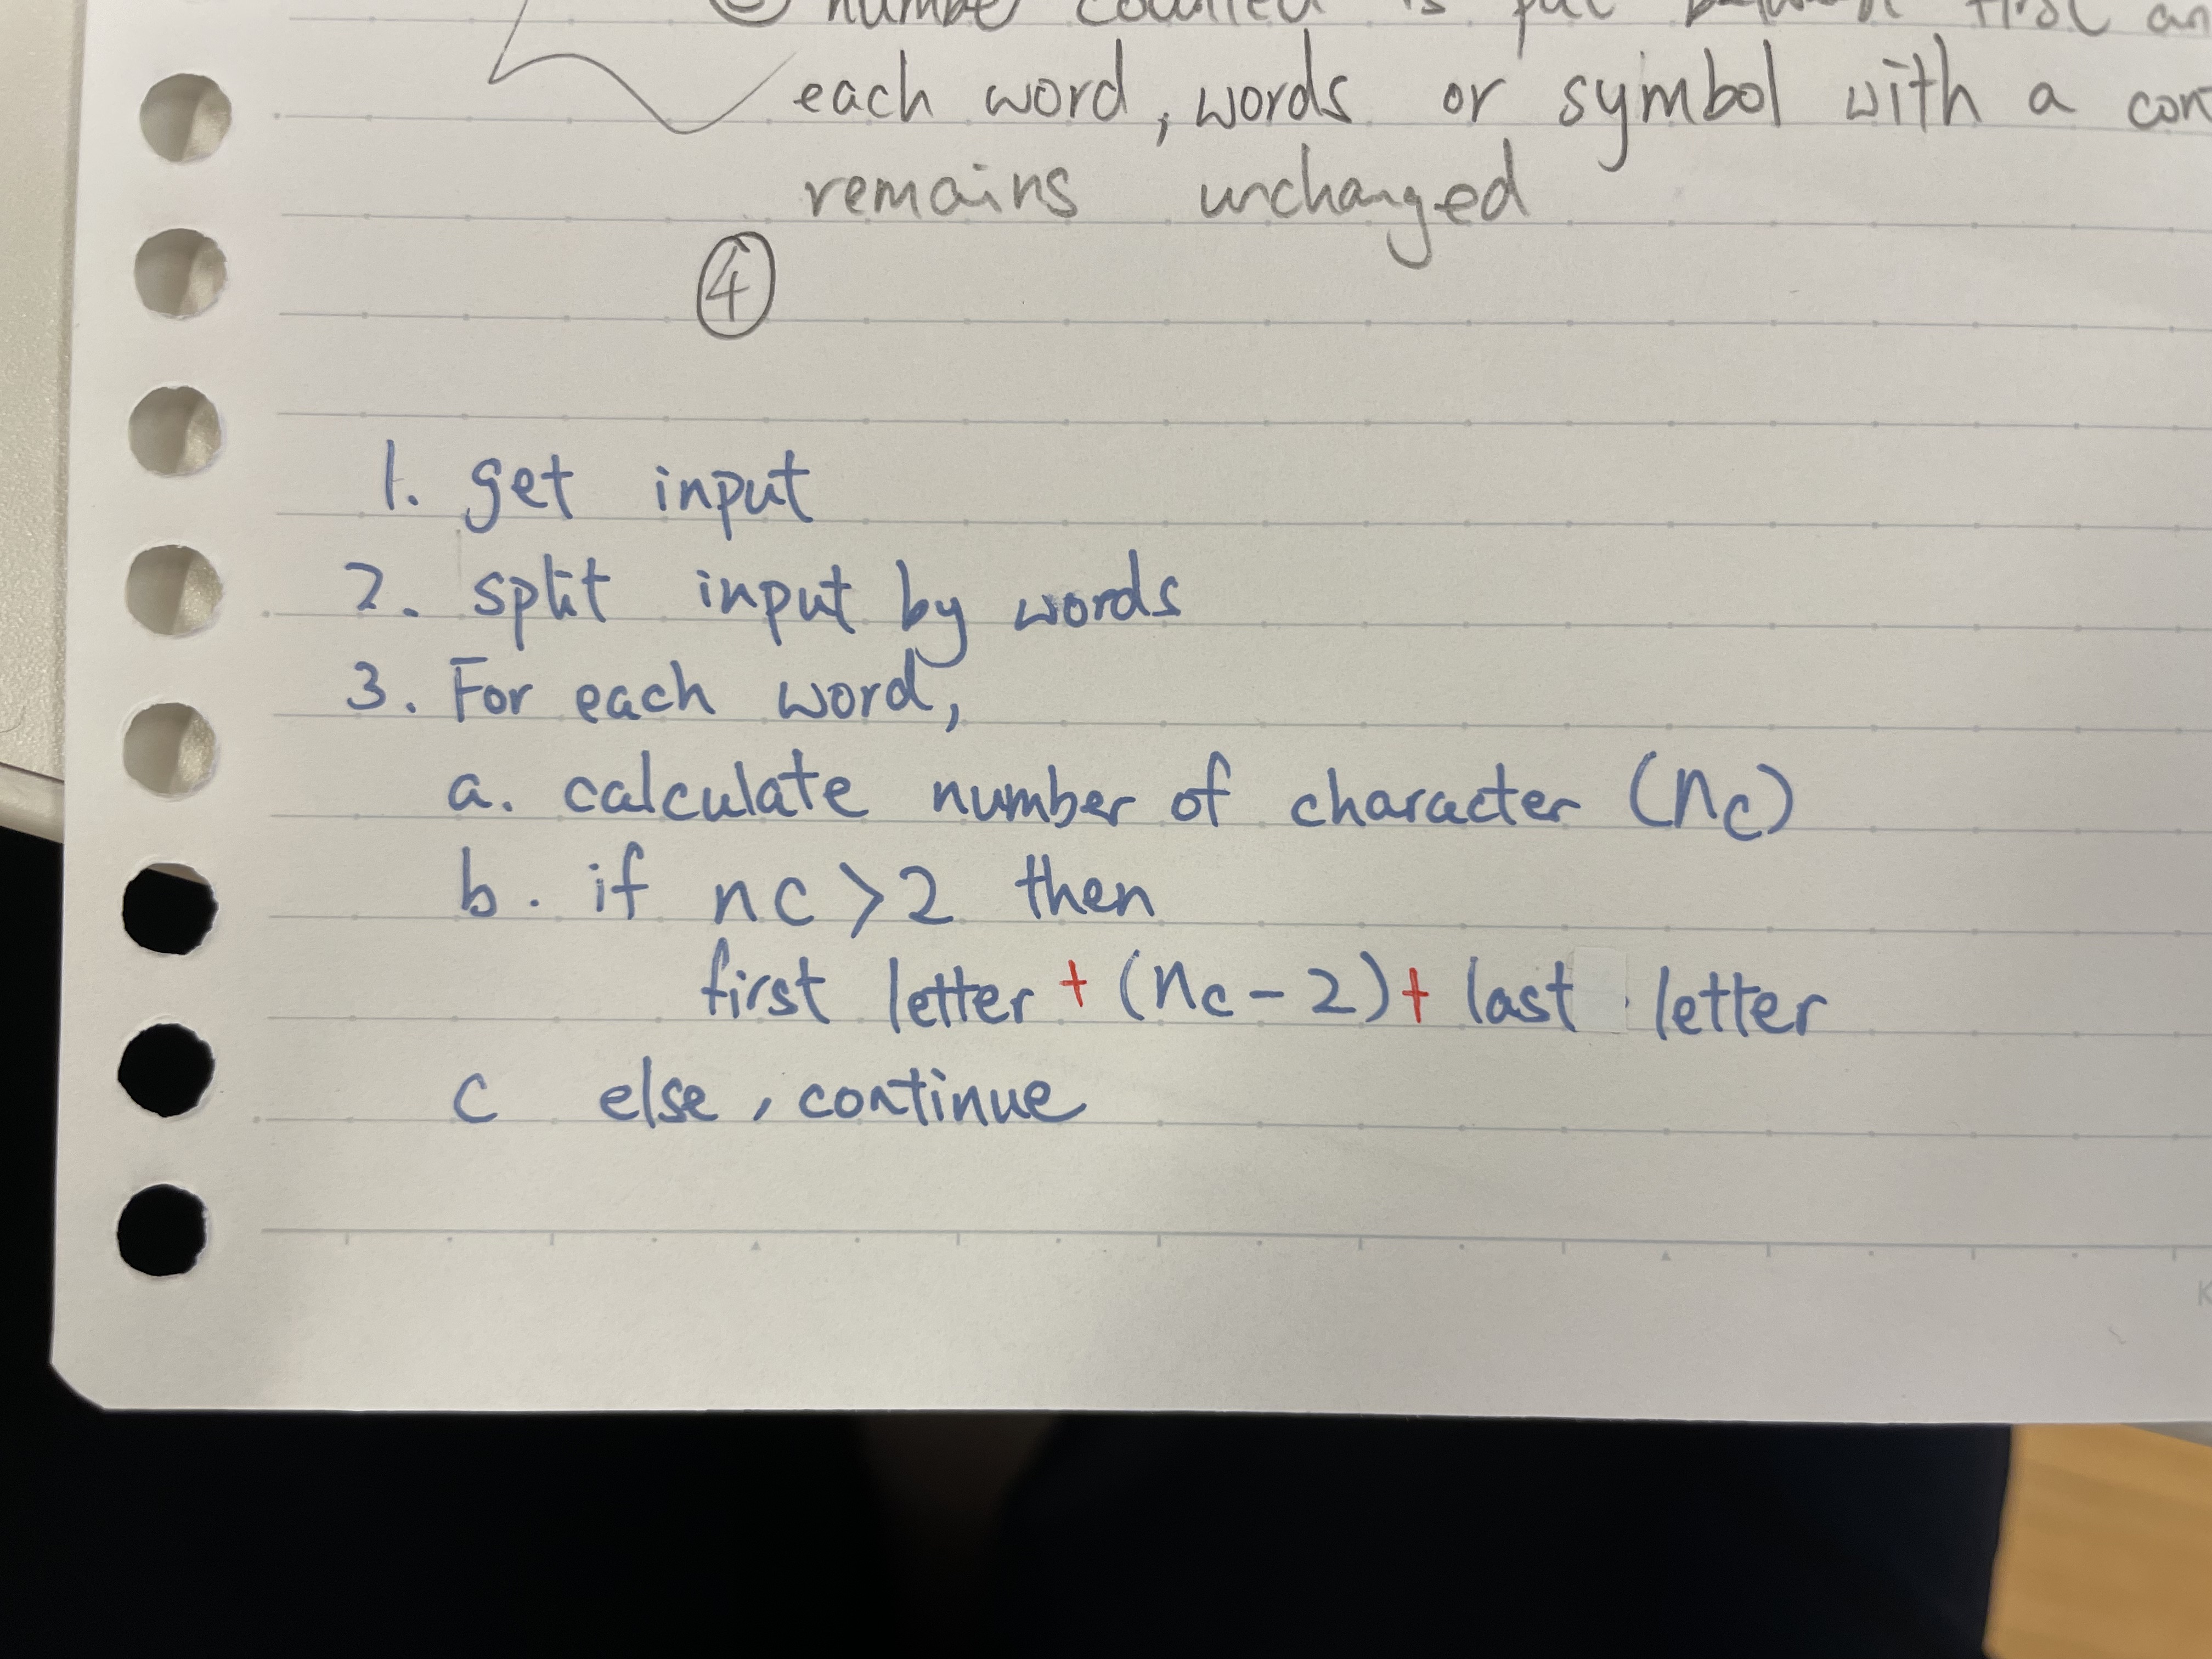 counted is put between first an
each word, words or symbol with a con
remains unchanged
④
1. get input
2. split input by words
3. For each word,
a. calculate number of character (nc)
b. if nc > 2 then
first letter + (nc - 2) + last letter
c else, continue